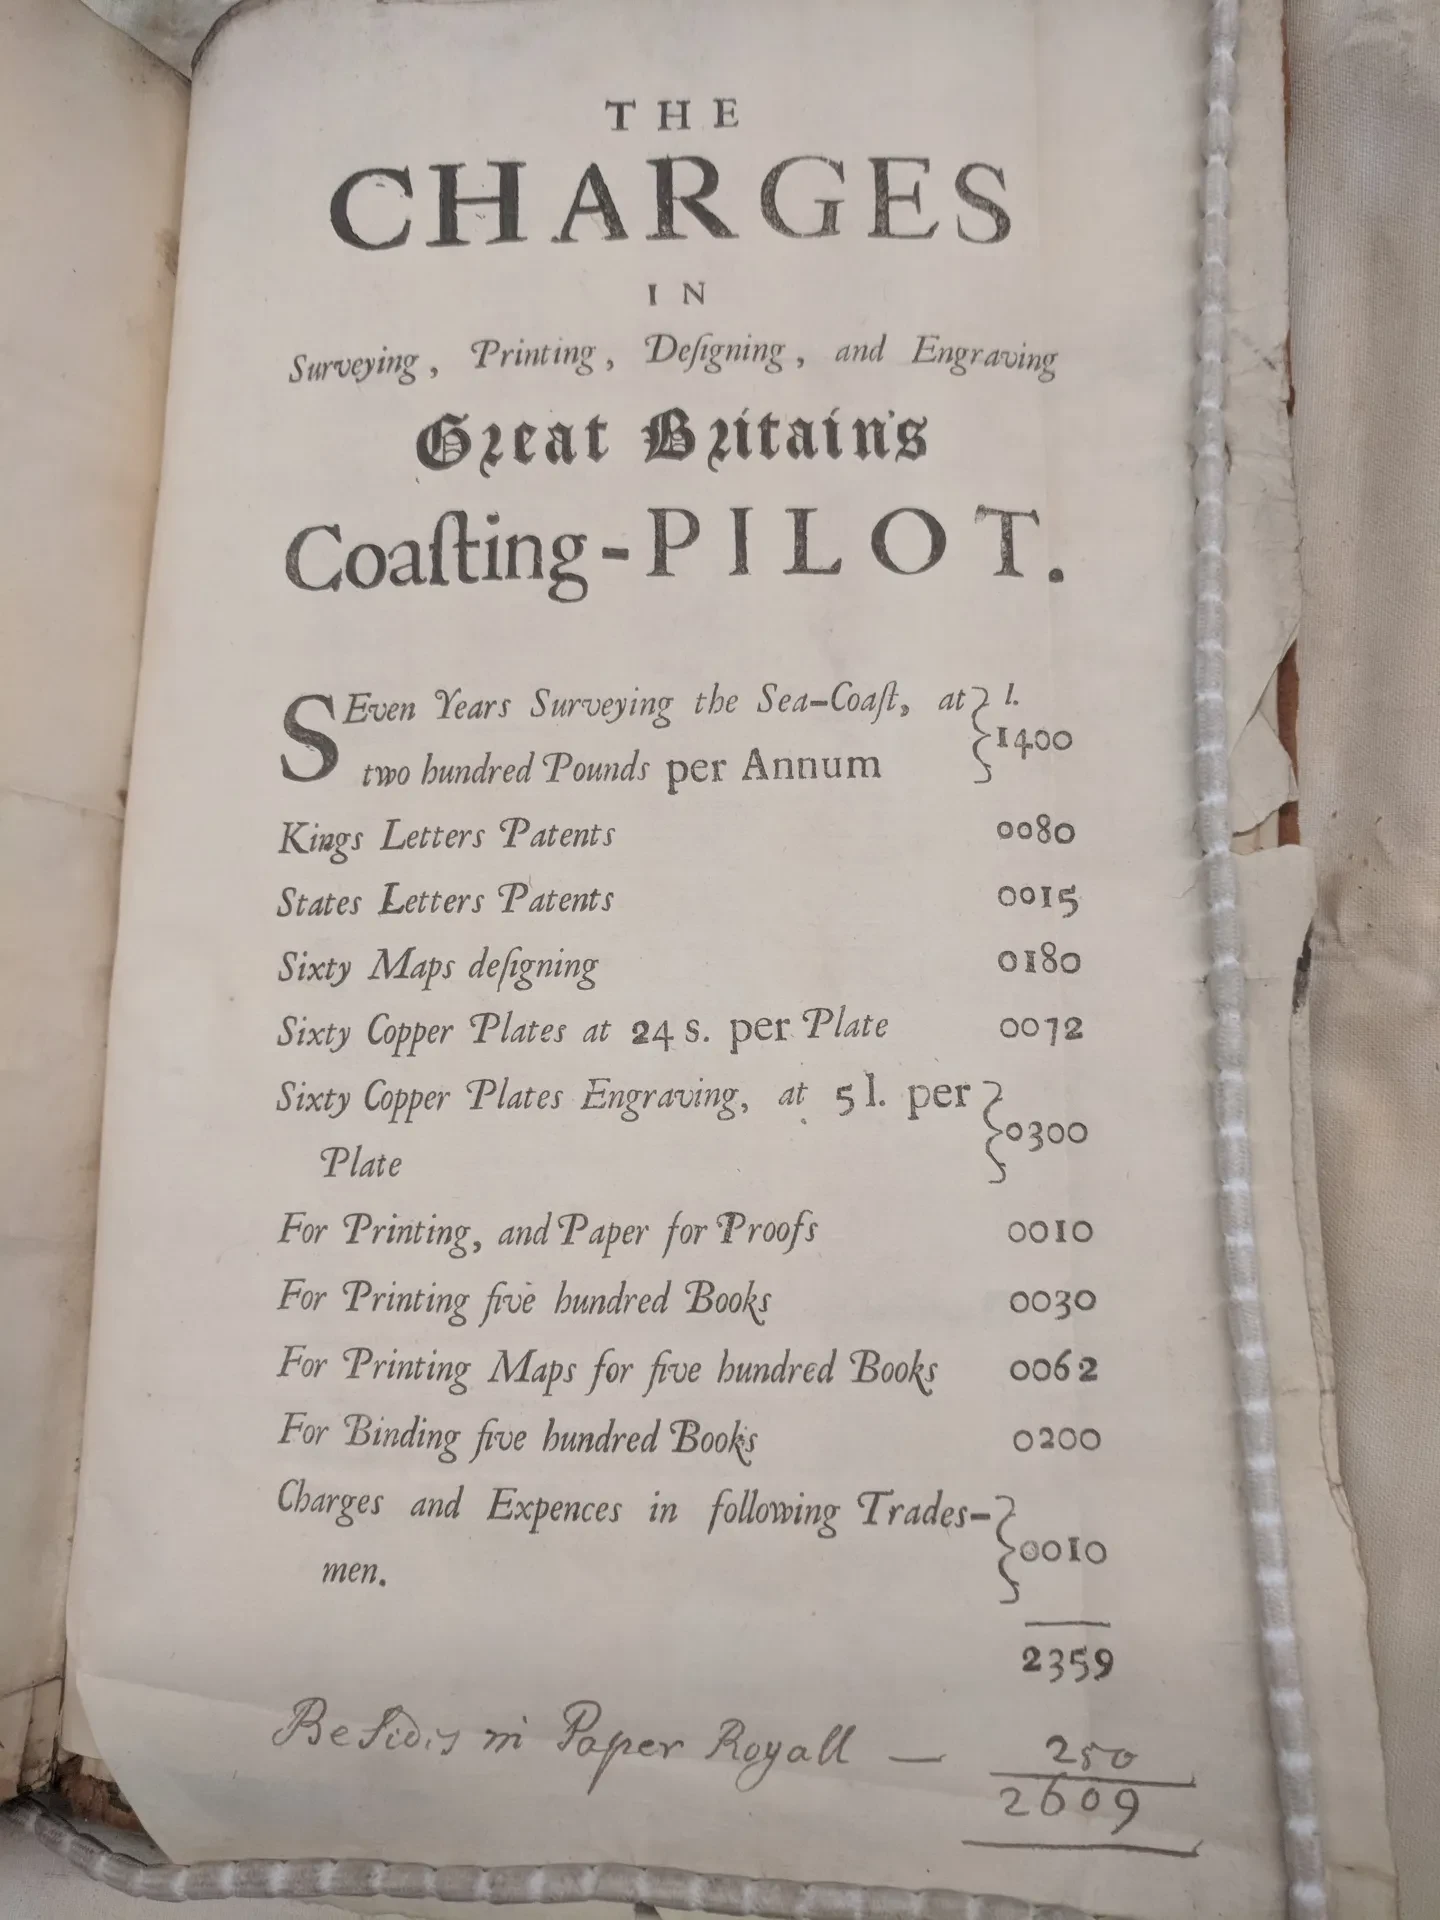 THE
CHARGES
IN
Surveying, Printing, Deſigning, and Engraving
Great Britain's
Coaſting-PILOT.
SEven Years Surveying the Sea-Coaſt, at } l.
two hundred Pounds per Annum } 1400
Kings Letters Patents 0080
States Letters Patents 0015
Sixty Maps deſigning 0180
Sixty Copper Plates at 24 s. per Plate 0072
Sixty Copper Plates Engraving, at 5 l. per }
Plate } 0300
For Printing, and Paper for Proofs 0010
For Printing five hundred Books 0030
For Printing Maps for five hundred Books 0062
For Binding five hundred Books 0200
Charges and Expences in following Trades-
men. } 0010
2359
Beſidis in Paper Royall — 250
2609